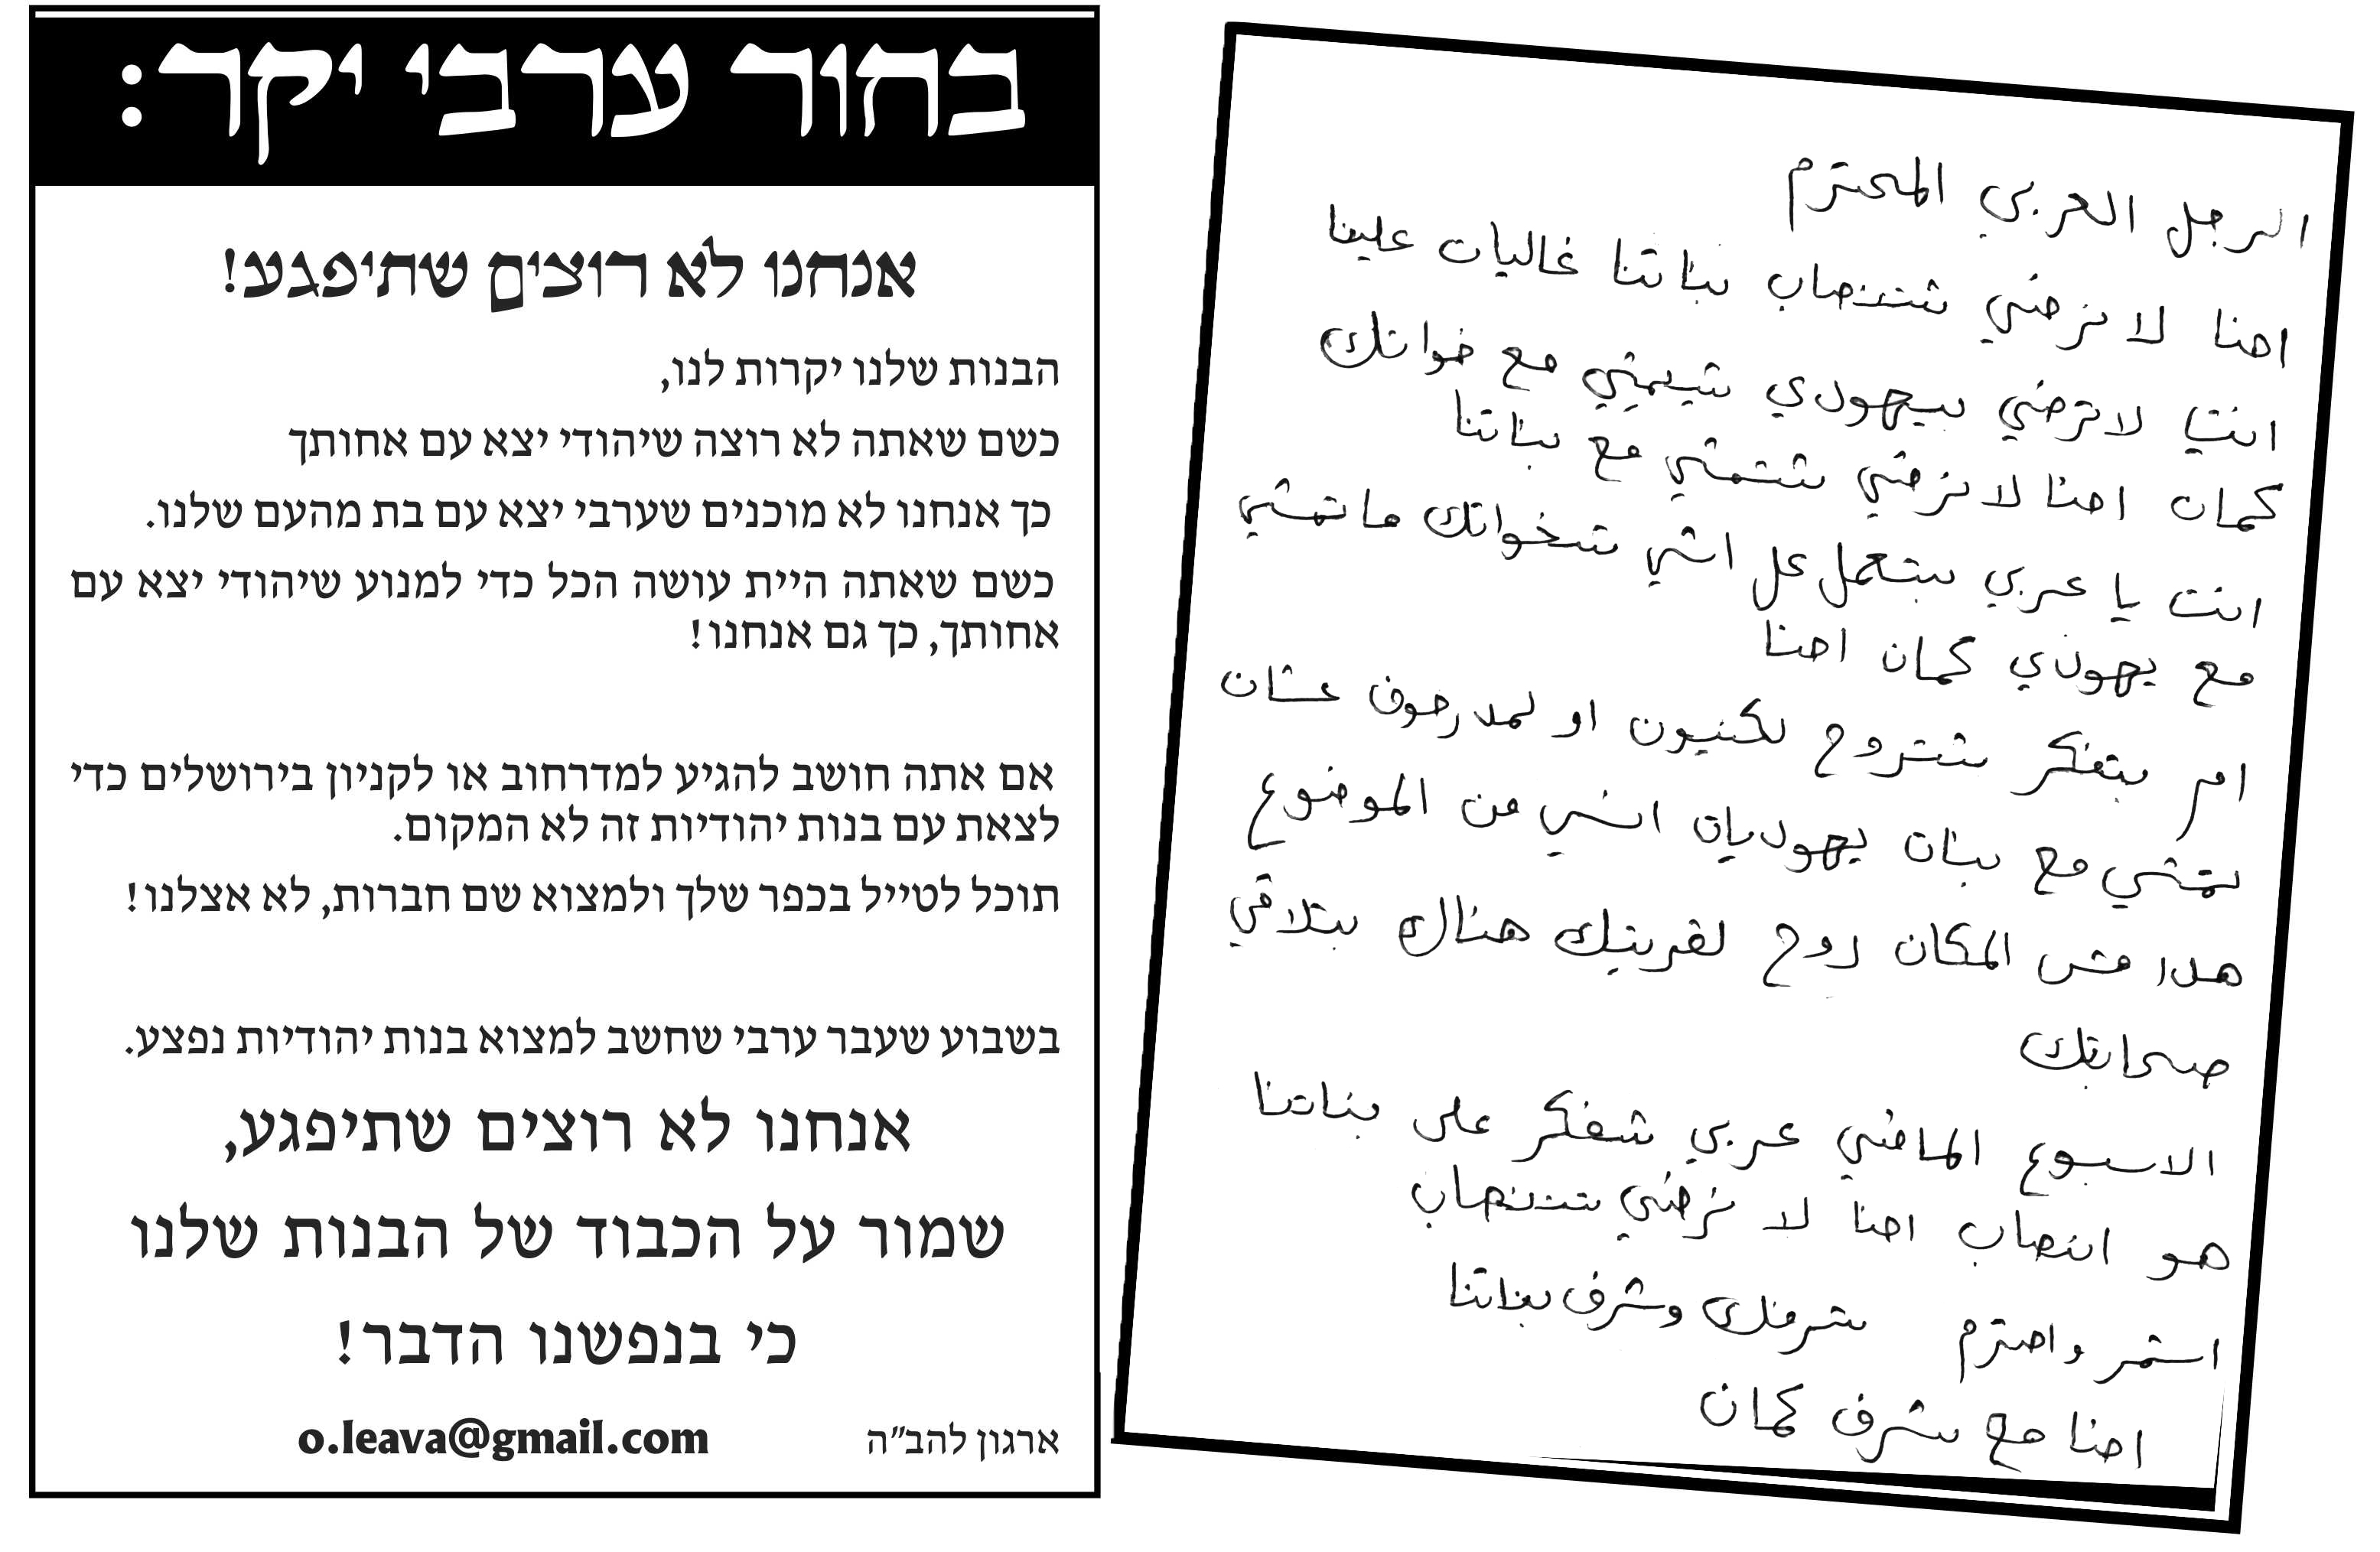 בחור ערבי יקר:
אנחנו לא רוצים שתיפגע!
הבנות שלנו יקרות לנו,
כשם שאתה לא רוצה שיהודי יצא עם אחותך
כך אנחנו לא מוכנים שערבי יצא עם בת מהעם שלנו.
כשם שאתה היית עושה הכל כדי למנוע שיהודי יצא עם
אחותך, כך גם אנחנו!
אם אתה חושב להגיע למדרחוב או לקניון בירושלים כדי
לצאת עם בנות יהודיות זה לא המקום.
תוכל לטייל בכפר שלך ולמצוא שם חברות, לא אצלנו!
בשבוע שעבר ערבי שחשב למצוא בנות יהודיות נפצע.
אנחנו לא רוצים שתיפגע,
שמור על הכבוד של הבנות שלנו
כי בנפשנו הדבר!
ארגון להב"ה o.leava@gmail.com
الرجل العربي المحترم
احنا لا نرضي شتنصاب بناتنا غاليات علينا
انت لا ترضي بيهودي شيمشي مع خواتك
كمان احنا لا نرضي شتمشي مع بناتنا
انت يا عربي بتعمل عل اشي شخواتك ما تمشي
مع يهودي كمان احنا
ام بتفكر شتروح لكنيون او لمدرحوف عشان
تمشي مع بنات يهوديات انسي من الموضوع
هدا مش المكان روح لقريتك هناك بتلاقي
صحابتك
الاسبوع الماضي عربي شفكر على بناتنا
هو انصاب احنا لا نرضي شتنصاب
استمر واحترم شرفك وشرف بناتنا
احنا مع شرف كمان